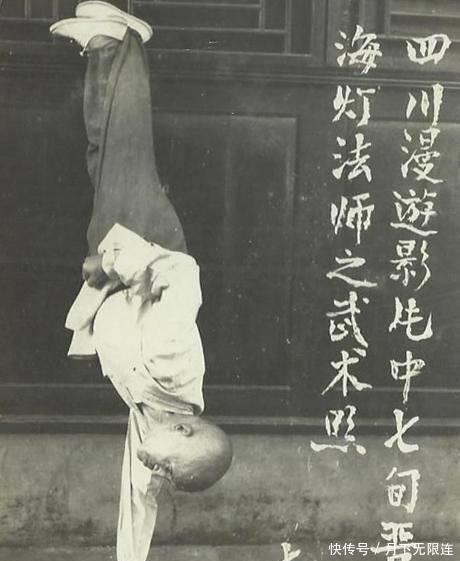 四川漫遊影片中七旬
海灯法师之武术照
快传号 / 月下无限连